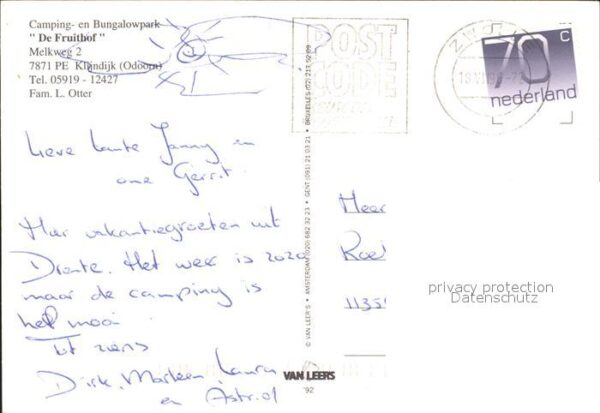 Camping- en Bungalowpark
" De Fruithof "
Melkweg 2
7871 PE Klijndijk (Odoorn)
Tel. 05919 - 12427
Fam. L. Otter
Lieve tante Janny en
ome Gerrit.
Hier vakantiegroeten uit
Drente. Het weer is zozo
maar de camping is
heel mooi
Tot ziens
Dirk, Marleen, Laura
en Astrid
POST
CODE
70 c
nederland
© VAN LEER'S • AMSTERDAM (020) 682 32 23 • GENT (091) 21 03 21 • BRUXELLES (02) 217 52 09
Meer
Roel
1135
privacy protection
Datenschutz
VAN LEERS
'92